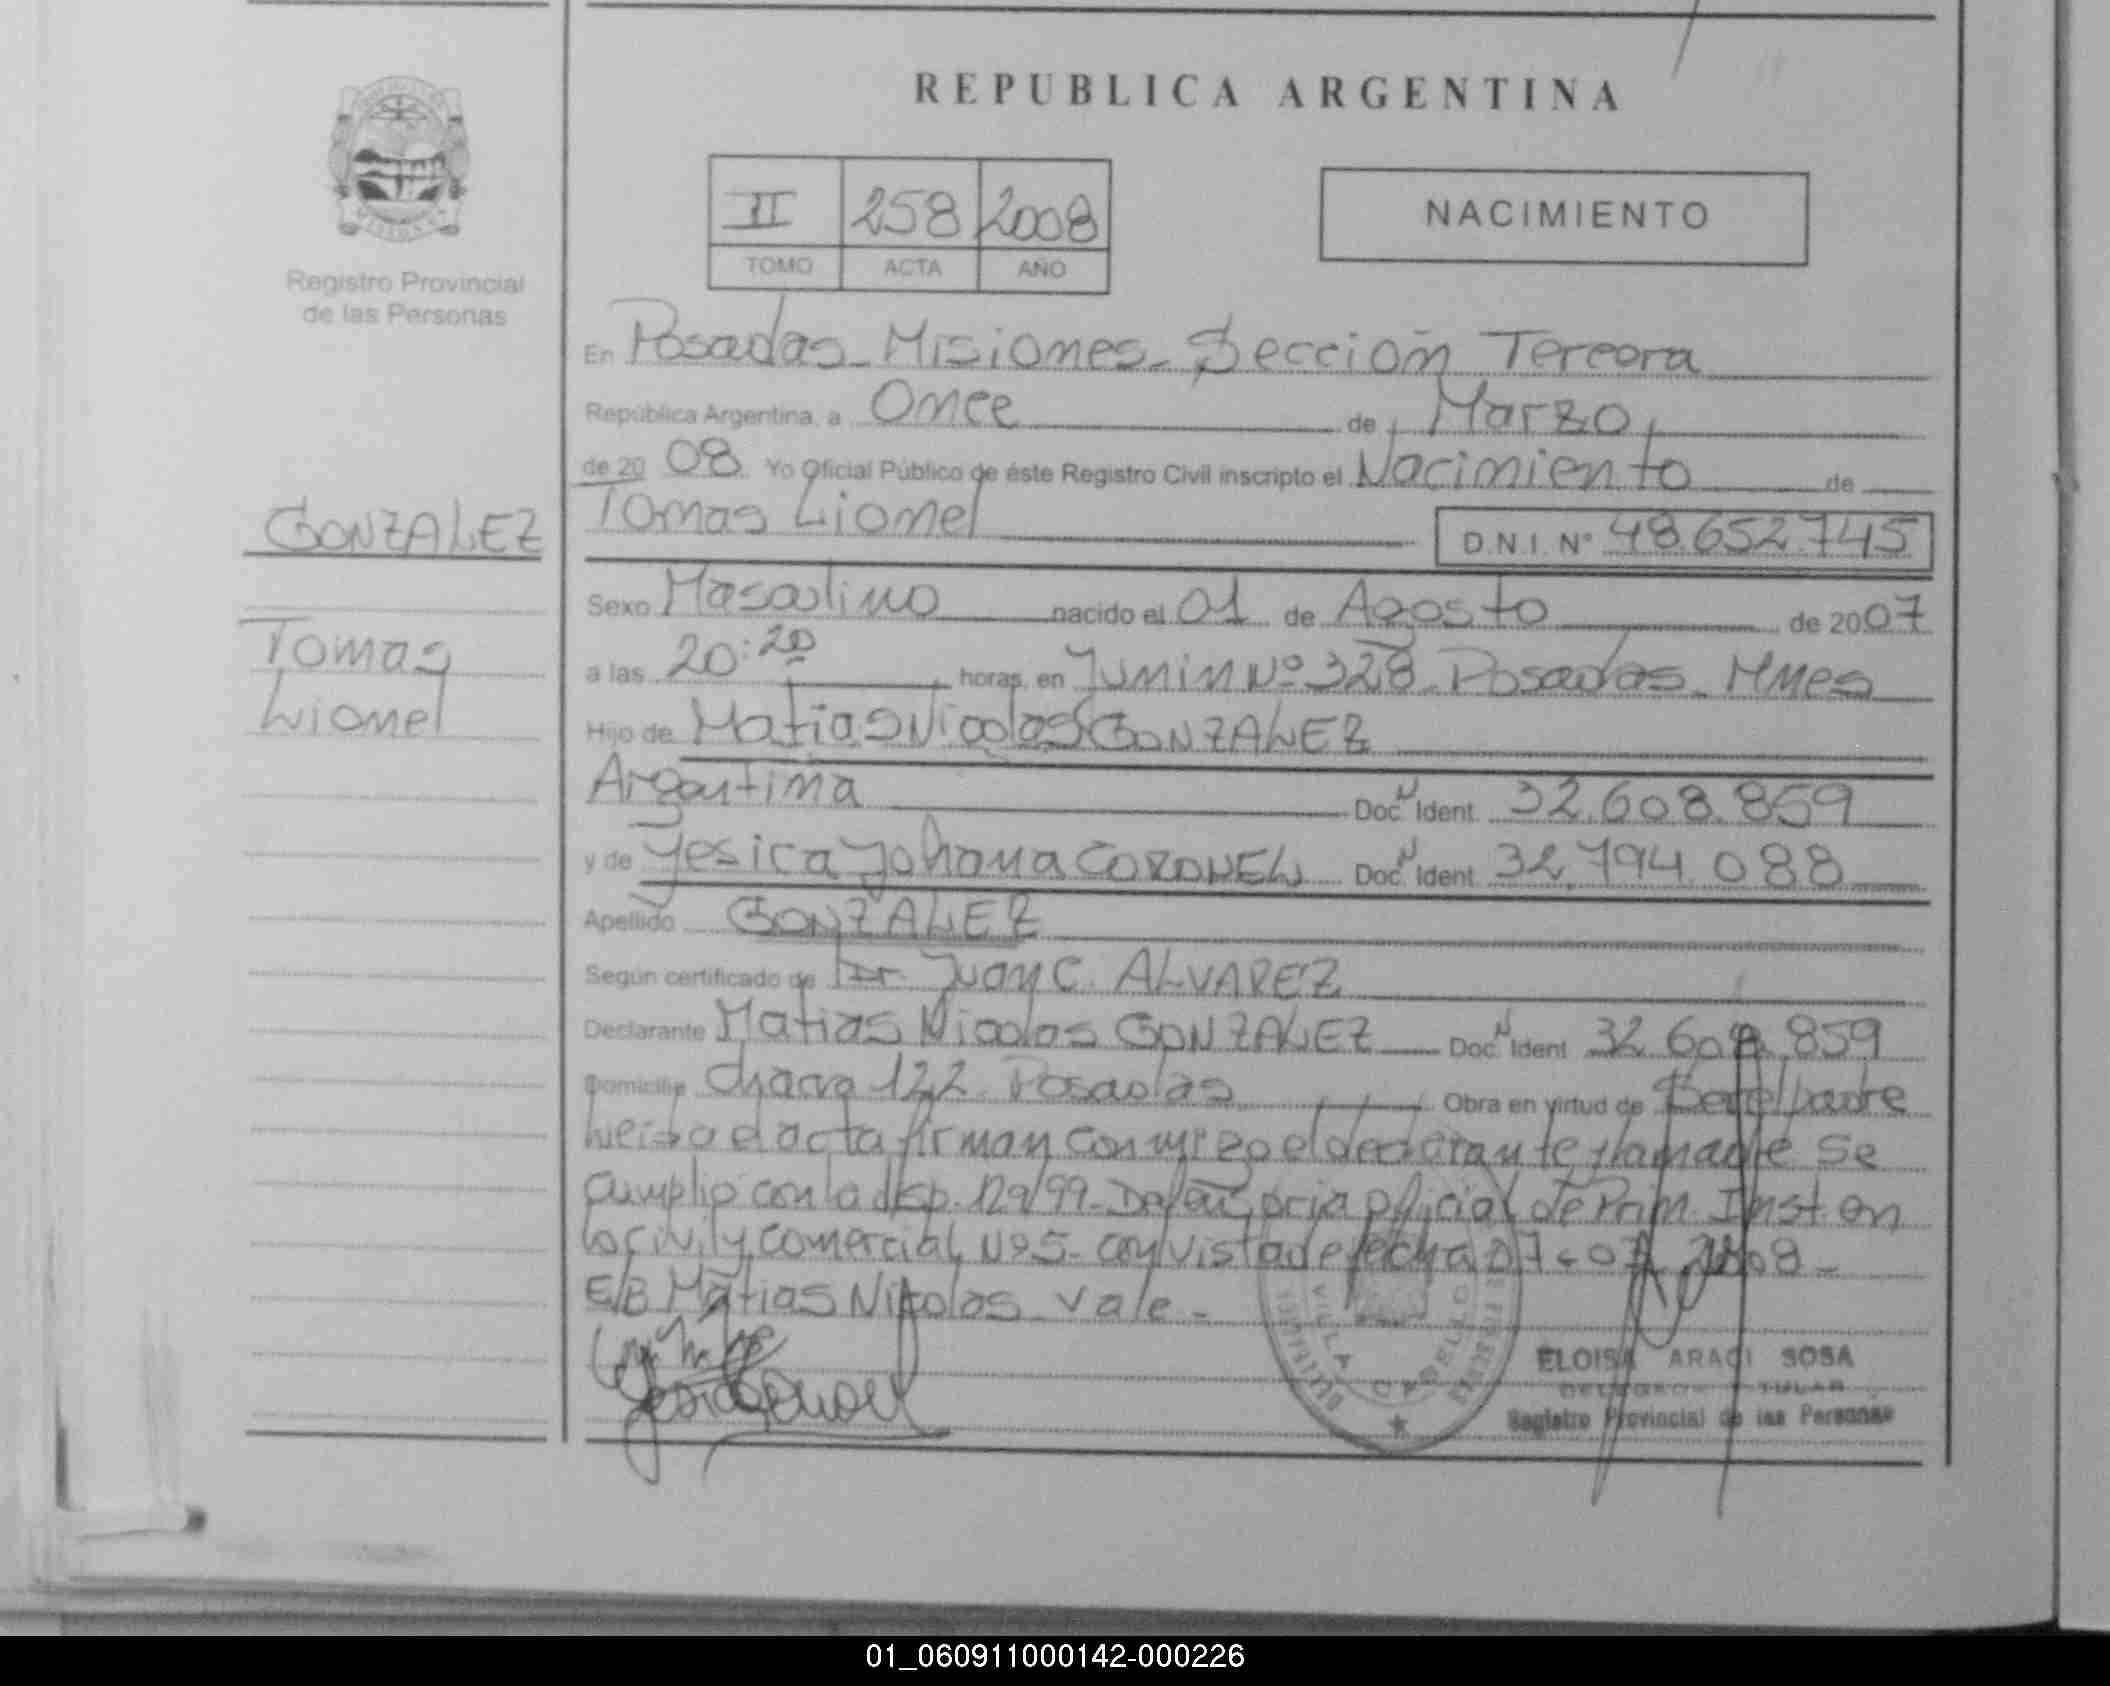 REPUBLICA ARGENTINA
II 258 2008
TOMO ACTA AÑO
NACIMIENTO
Registro Provincial
de las Personas
GONZALEZ
Tomas
Lionel
En Posadas - Misiones - Sección Tercera
República Argentina, a Once de Marzo
de 20 08 Yo Oficial Público de éste Registro Civil inscripto el Nacimiento de
Tomas Lionel D.N.I. Nº 48.652.745
Sexo Masculino nacido el 01 de Agosto de 2007
a las 20:20 horas, en Junin Nº 328 - Posadas - Mnes
Hijo de Matias Nicolas GONZALEZ
Argentina Doc. N Ident. 32.608.859
y de Yesica Johana CORONEL Doc. N Ident. 32.794.088
Apellido GONZALEZ
Según certificado de Dr. Juan C. ALVAREZ
Declarante Matias Nicolas GONZALEZ Doc. N Ident 32.608.859
Domicilio Chacra 122 - Posadas Obra en virtud de Ser el padre
Leida el acta firman conmigo el declarante y la madre Se
cumplio con la disp. 129/99 - Defensoria Oficial de Prim. Inst. en
lo Civil y Comercial Nº 5 - con vista de fecha 07-03-2008 -
E/B Matias Nicolas - Vale -
VILLA CABELLO
ELOISA ARACI SOSA
Registro Provincial de las Personas
01_060911000142-000226